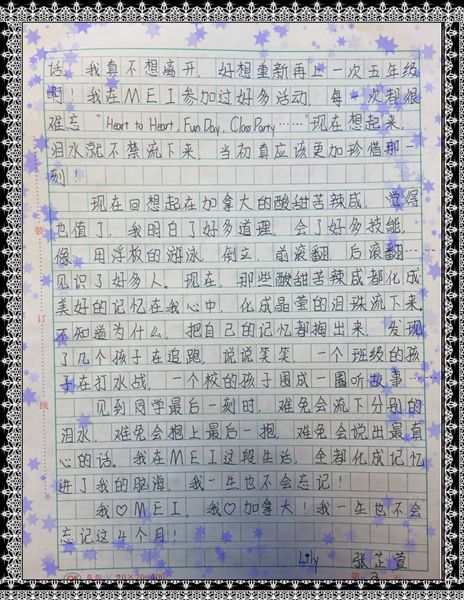 话。我真不想离开，好想重新再上一次五年级
啊！我在MEI参加过好多活动，每一次都很
难忘“Heart to Heart, Fun Day, Class Party……”现在想起来，
泪水就不禁流下来，当初真应该更加珍惜那一
刻！
现在回想起在加拿大的酸甜苦辣咸，觉得
也值了，我明白了好多道理，会了好多技能，
像：用浮板的游泳，倒立，前滚翻，后滚翻……
见识了好多人。现在，那些酸甜苦辣咸都化成
美好的记忆在我心中，化成晶莹的泪珠流下来，
不知道为什么，把自己的记忆都掏出来，发现
了几个孩子在追跑，说说笑笑，一个班级的孩
子在打水战，一个校的孩子围成一圈听故事…
见到同学最后一刻时，难免会流下分别的
泪水，难免会抱上最后一抱，难免会说出最真
心的话。我在MEI这段生活，全都化成记忆
进了我的脑海，我一生也不会忘记！
我♡MEI，我♡加拿大！我一生也不会
忘记这4个月！
Lily 张芷萱
装
订
线
20×20=400
第 3 页